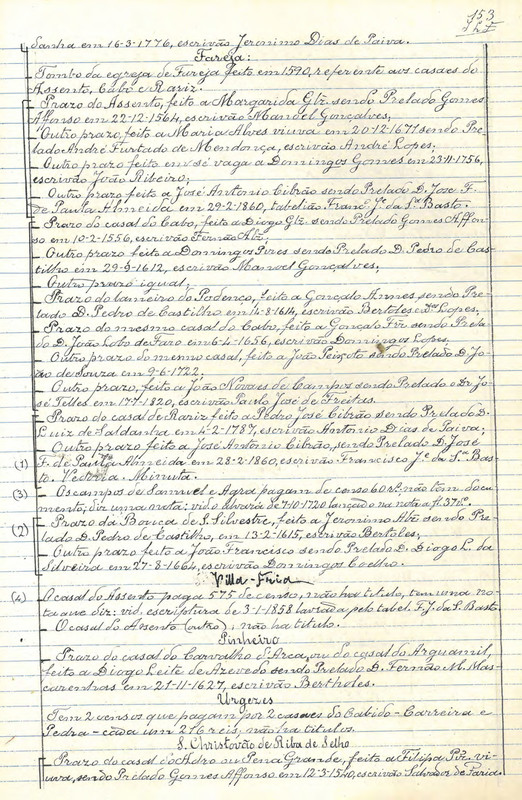 153
danha em 16-3-1776, escrivão Jeronimo Dias de Paiva.
Fareja:
Tombo da egreja de Fareja feito em 1590, referente aos casaes do
Assento, Cabo e Rariz.
_ Prazo do Assento, feito a Margarida Glz. sendo Prelado Gomes
Affonso em 22-12-1564, escrivão Manoel Gonçalves,
_ Outro prazo, feito a Maria Alves viuva em 20-12-1677 sendo Pre-
lado André Furtado de Mendonça, escrivão André Lopes;
_ Outro prazo feito em sé vaga a Domingos Gomes em 23-11-1756,
escrivão João Ribeiro;
_ Outro prazo feito a José Antonio Cibrão sendo Prelado D. José F.
de Paula Almeida em 29-2-1860, tabelião Franc.º J.e da S.a Basto.
_ Prazo do casal do Cabo, feito a Diogo Glz. sendo Prelado Gomes Affon-
so em 10-2-1556, escrivão Fernão Alz;
_ Outro prazo feito a Domingos Pires sendo Prelado D. Pedro de Cas-
tilho em 29-8-1612, escrivão Manoel Gonçalves;
_ Outro prazo igual;
_ Prazo do lameiro do Podenco, feito a Gonçalo Annes, sendo Pre-
lado D. Pedro de Castilho em 14-8-1614, escrivão Bertoles Lopes;
_ Prazo do mesmo casal do Cabo, feito a Gonçalo Frz sendo Prela
do D. João Lobo de Faro em 6-4-1656, escrivão Domingos Lopes;
_ Outro prazo do mesmo casal, feito a João Peixoto sendo Prelado D. Jo-
ão de Souza em 9-6-1722;
_ Outro prazo, feito a João Novaes de Campos sendo Prelado o Dr. Jo-
sé Telles em 17-7-1820, escrivão Paulo José de Freitas.
_ Prazo do casal de Rariz feito a Pedro José Cibrão sendo Prelado D.
Luiz de Saldanha em 4-2-1787, escrivão Antonio Dias de Paiva;
_ Outro prazo feito a José Antonio Cibrão, sendo Prelado D. José
(1) F. de Paula Almeida em 28-2-1860, escrivão Francisco J.e da S.a Bas-
to. Vistoria. Minuta.
(3) _ Os campos de Samuel e Agra pagam de censo 60 rs. não tem docu
mento, diz uma nota; vid o alvará de 7-10-1720 lançado na nota a fl. 37 v.
(2) _ Prazo da Bouça de S. Silvestre, feito a Jeronimo Alz sendo Pre
lado D. Pedro de Castilho, em 13-2-1615, escrivão Bertoles;
_ Outro prazo feito a João Francisco sendo Prelado D. Diogo L. da
Silveira em 27-8-1664, escrivão Domingos Coelho.
Villa-Fria
(4) _ O casal do Assento paga 575 de censo, não ha titulo, tem uma no
ta que diz: vid. escriptura de 3-1-1858 lavrada pelo tabel. F. J. da S. Basto
_ O casal do Assento (outro), não ha titulo.
Pinheiro
_ Prazo do casal do Carvalho d'Arca, ou do casal do Arguamil,
feito a Diogo Leite de Azevedo sendo Prelado D. Fernão M. Mas-
carenhas em 27-11-1627, escrivão Bertholes.
Urgezes
Tem 2 censos que pagam por 2 casaes do Cabido - Carreira e
Pedra - cada um 216 reis, não ha titulos.
S. Christovão de Riba de Selho
_ Prazo do casal d'Adro ou Pena Grande, feito a Filipa Piz. vi-
uva, sendo Prelado Gomes Affonso em 12-3-1540, escrivão Salvador de Faria